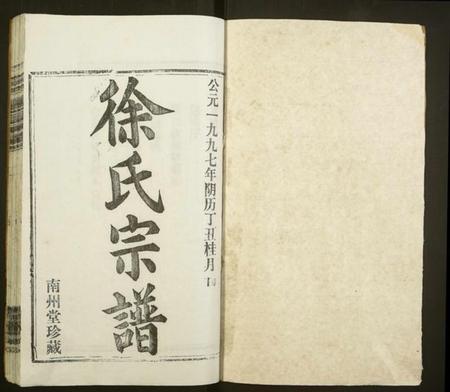 公元一九九七年阴历丁丑桂月
徐氏宗譜
南州堂珍藏